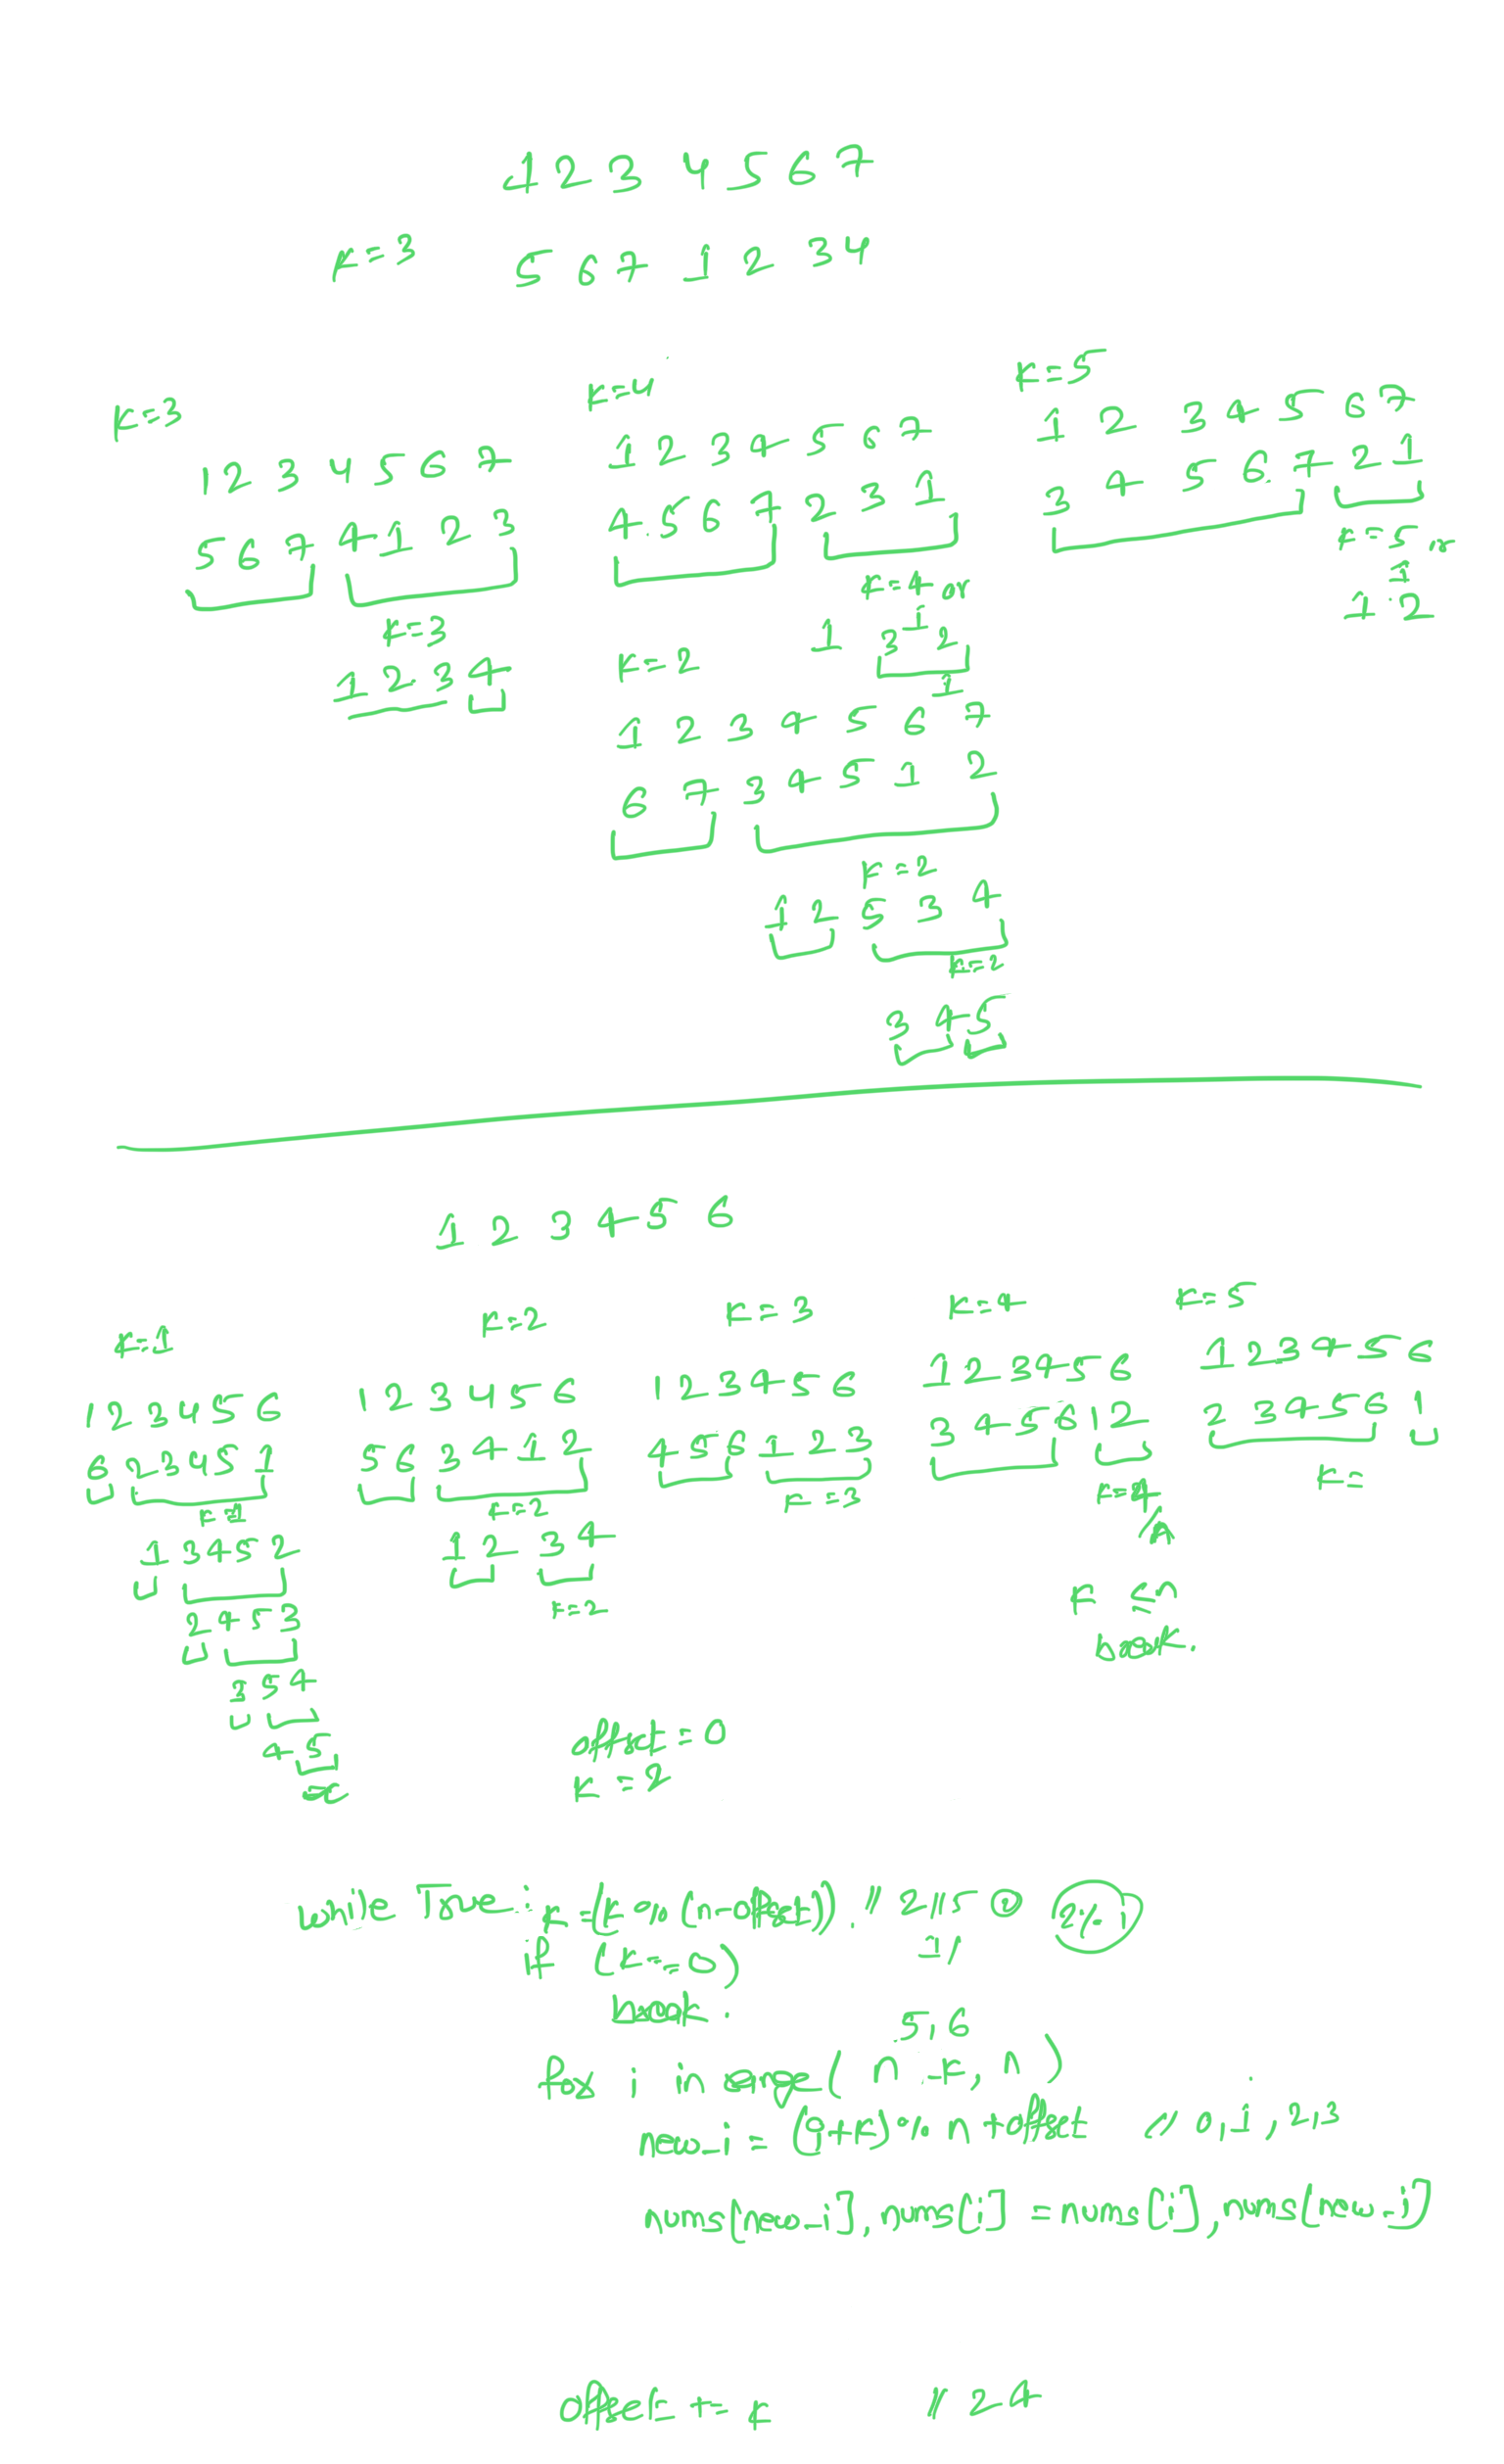 1 2 3 4 5 6 7
K=3 5 6 7 1 2 3 4
K=3
1 2 3 4 5 6 7
5 6 7 4 1 2 3
K=3
1 2 3 4
K=4
1 2 3 4 5 6 7
4 5 6 7 2 3 1
K=4 or 1
1 3 2
1
K=2
1 2 3 4 5 6 7
6 7 3 4 5 1 2
K=2
1 2 5 3 4
K=2
3 4 5
K=5
1 2 3 4 5 6 7
3 4 5 6 7 2 1
K=5 or
1
1 2
1 2 3 4 5 6
K=1
1 2 3 4 5 6
6 2 3 4 5 1
K=1
1 3 4 5 2
2 4 5 3
3 5 4
4 5
K=2
1 2 3 4 5 6
5 6 3 4 1 2
K=2
1 2 3 4
K=2
K=3
1 2 3 4 5 6
4 5 6 1 2 3
K=3
K=4
1 2 3 4 5 6
3 4 5 6 1 2
K ≤ n
break.
K=5
1 2 3 4 5 6
2 3 4 5 6 1
K=
offset = 0
K = 2
while True:
K=(K % (n-offset)). // 2
if (K==0)
break.
5, 6
for i in range(n-K, n)
new_i = (i+K) % n + offset // 0, 1, 2, 3
nums[new_i], nums[i] = nums[i], nums[new_i]
offset += k // 2 4